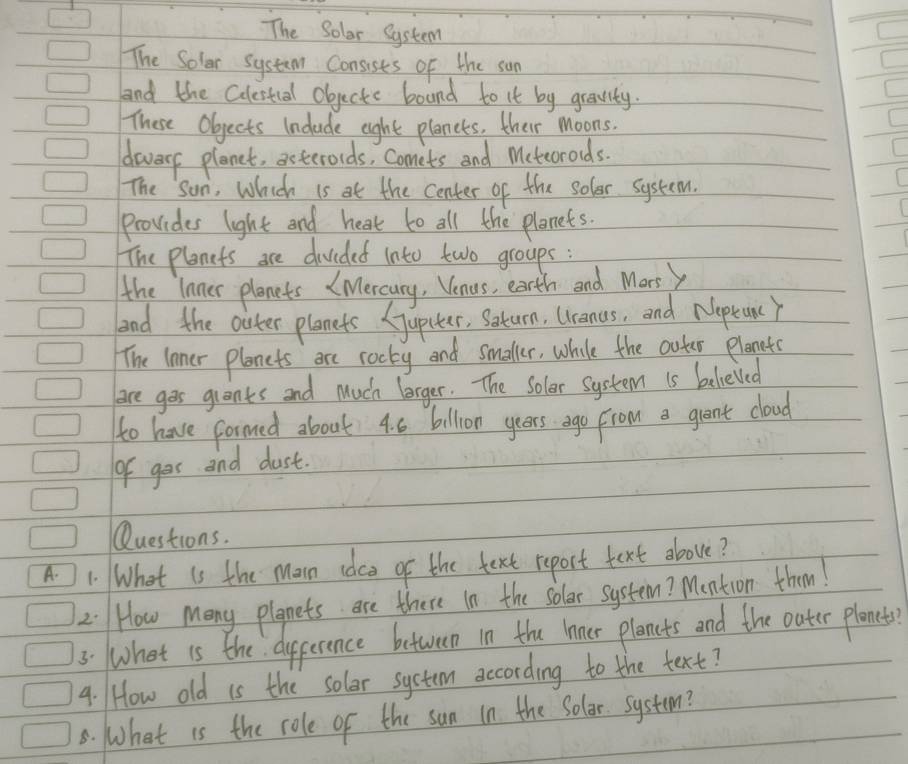 The Solar System
The Solar System Consists of the sun
and the Celestial Objects bound to it by gravity.
These Objects Include eight planets, their Moons.
dwarf planet, asteroids, Comets and Meteoroids.
The Sun, Which is at the Center of the solar System.
Provides light and heat to all the planets.
The Planets are divided into two groups:
the Inner planets <Mercury, Venus, earth and Mars>
and the outer planets <Jupiter, Saturn, Uranus, and Neptune>
The Inner Planets are rocky and smaller, while the outer Planets
are gas giants and Much larger. The Solar System is believed
to have formed about 4.6 billion years ago from a giant cloud
of gas and dust.
Questions.
A. 1. What is the Main idea of the text report text above?
2. How Many planets are there in the solar system? Mention them!
3. What is the difference between in the Inner Planets and the outer planets?
4. How old is the solar system according to the text?
5. What is the role of the sun in the Solar System?